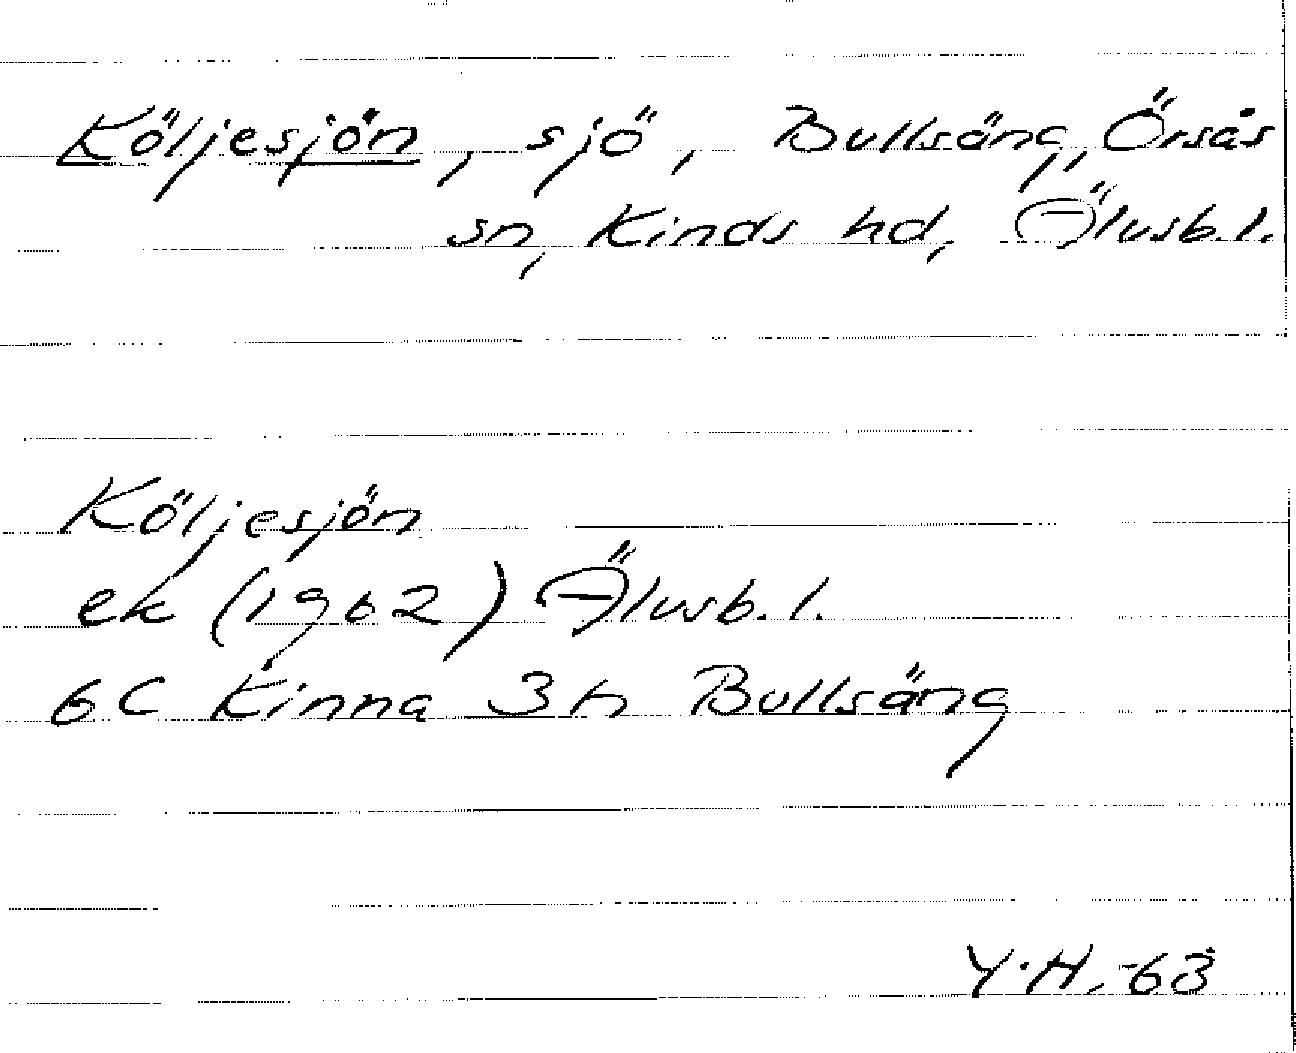 Köljesjön, sjö, Bullsäng, Örsås
sn, Kinds hd, Älvsb. l.
Köljesjön
ek (1962) Älvsb. l.
6C Kinna 3h Bullsäng
Y.H. -63